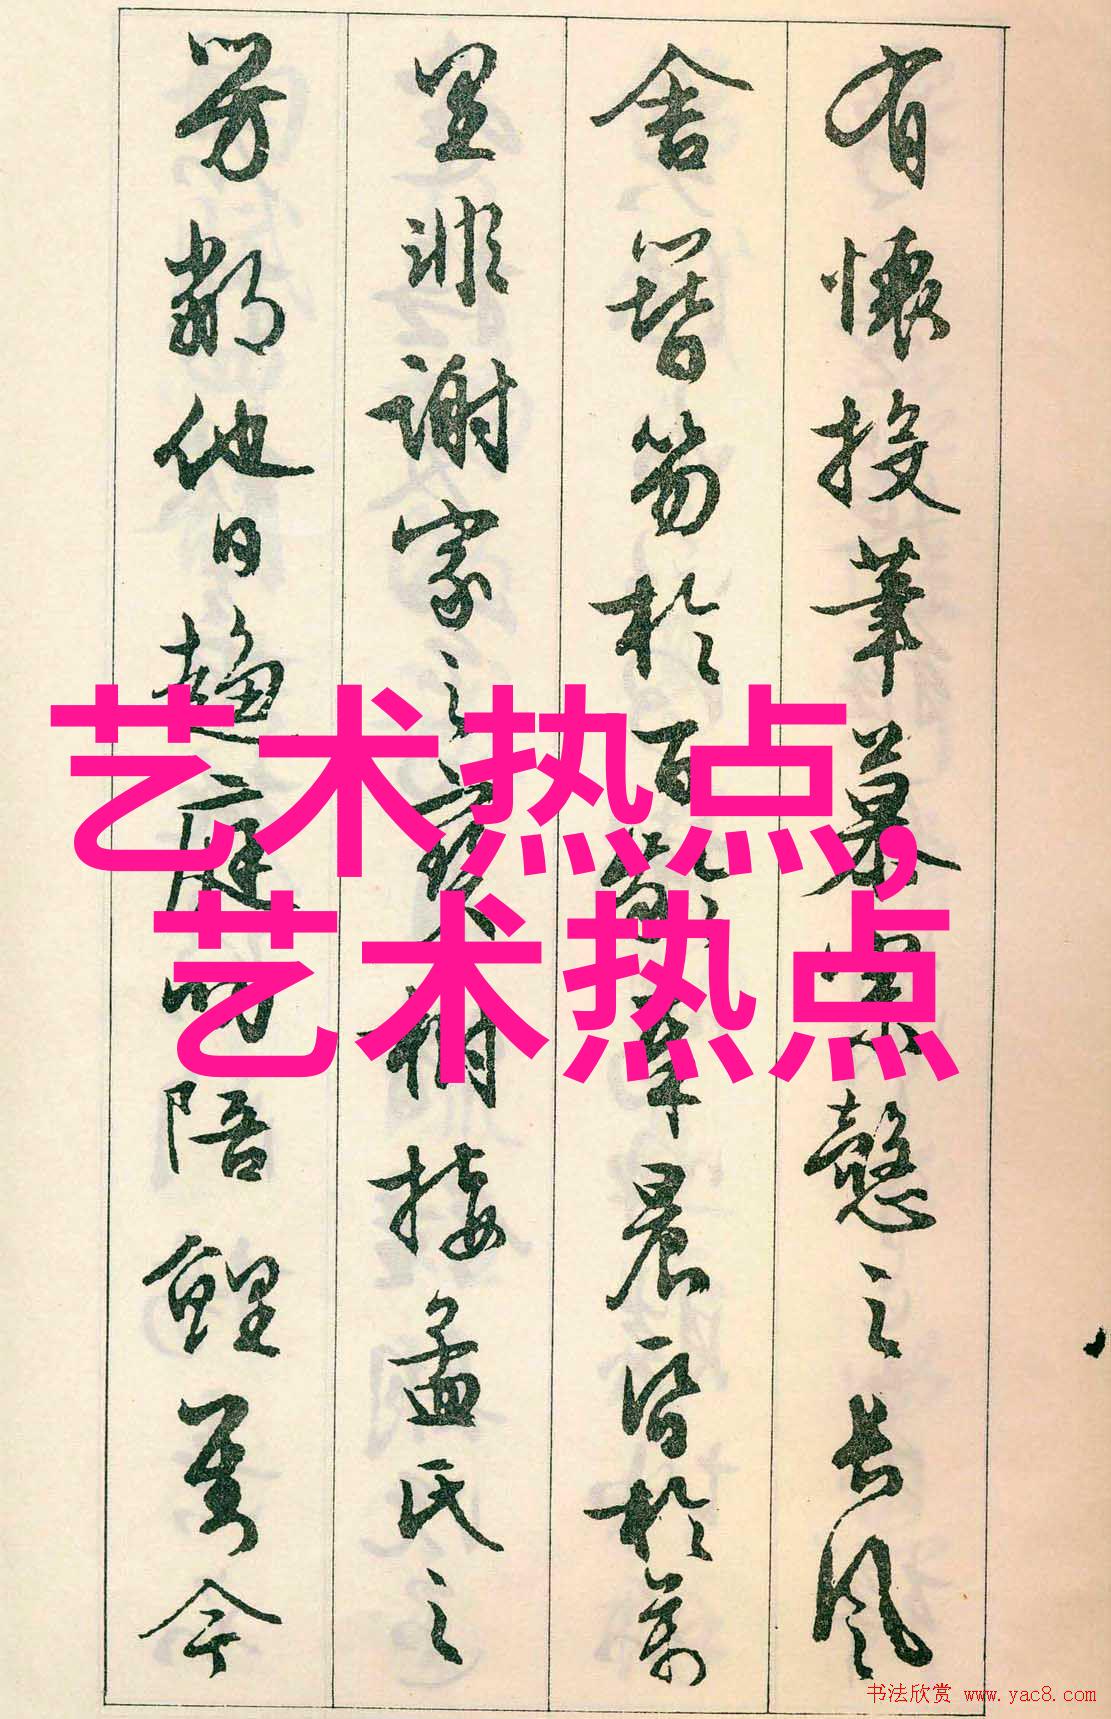 有懷投筆慕宗慤之長風
舍簪笏於百齡奉晨昏於萬
里非謝家之寶樹接孟氏之
芳鄰他日趨庭叨陪鯉對今
艺术热点,
艺术热点
书法欣赏 www.yac8.com